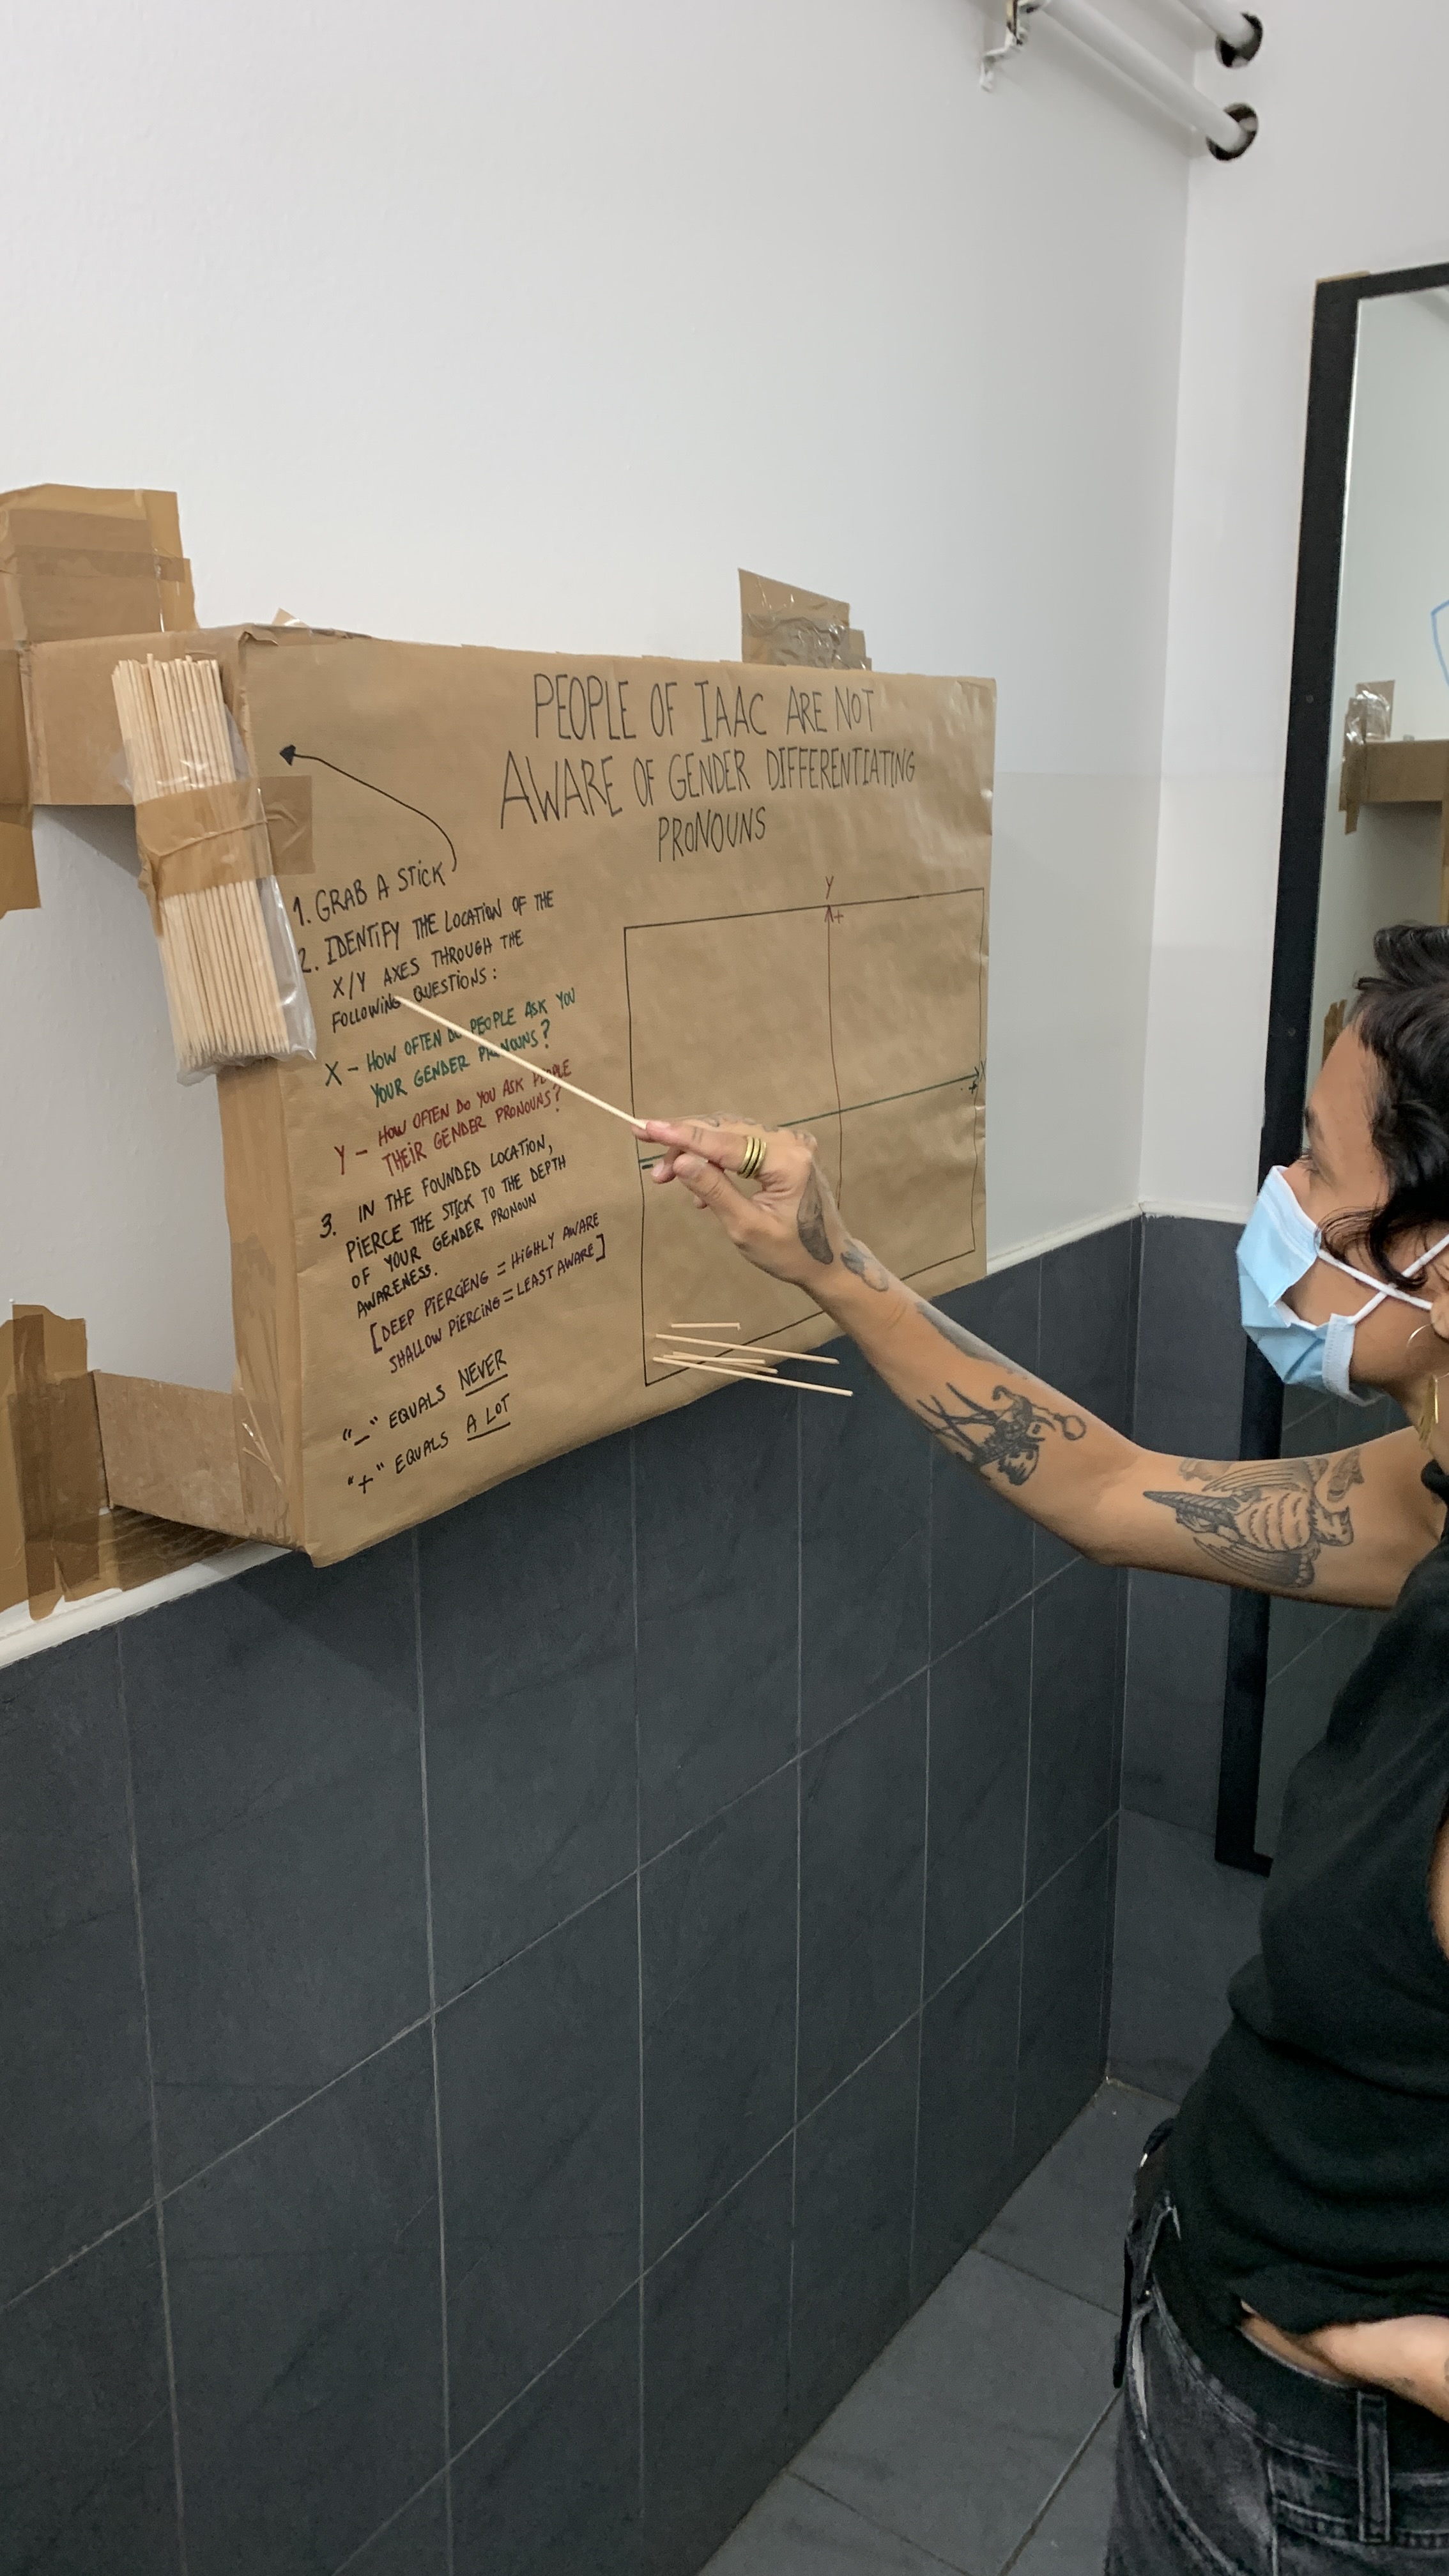 PEOPLE OF IAAC ARE NOT
AWARE OF GENDER DIFFERENTIATING
PRONOUNS
1. GRAB A STICK
2. IDENTIFY THE LOCATION OF THE
X/Y AXES THROUGH THE
FOLLOWING QUESTIONS:
X - HOW OFTEN DO PEOPLE ASK YOU
YOUR GENDER PRONOUNS?
Y - HOW OFTEN DO YOU ASK PEOPLE
THEIR GENDER PRONOUNS?
3. IN THE FOUNDED LOCATION,
PIERCE THE STICK TO THE DEPTH
OF YOUR GENDER PRONOUN
AWARENESS.
[DEEP PIERGENG = HIGHLY AWARE
SHALLOW PIERCING = LEAST AWARE]
"-" EQUALS NEVER
"+" EQUALS A LOT
Y
+
X
+
-